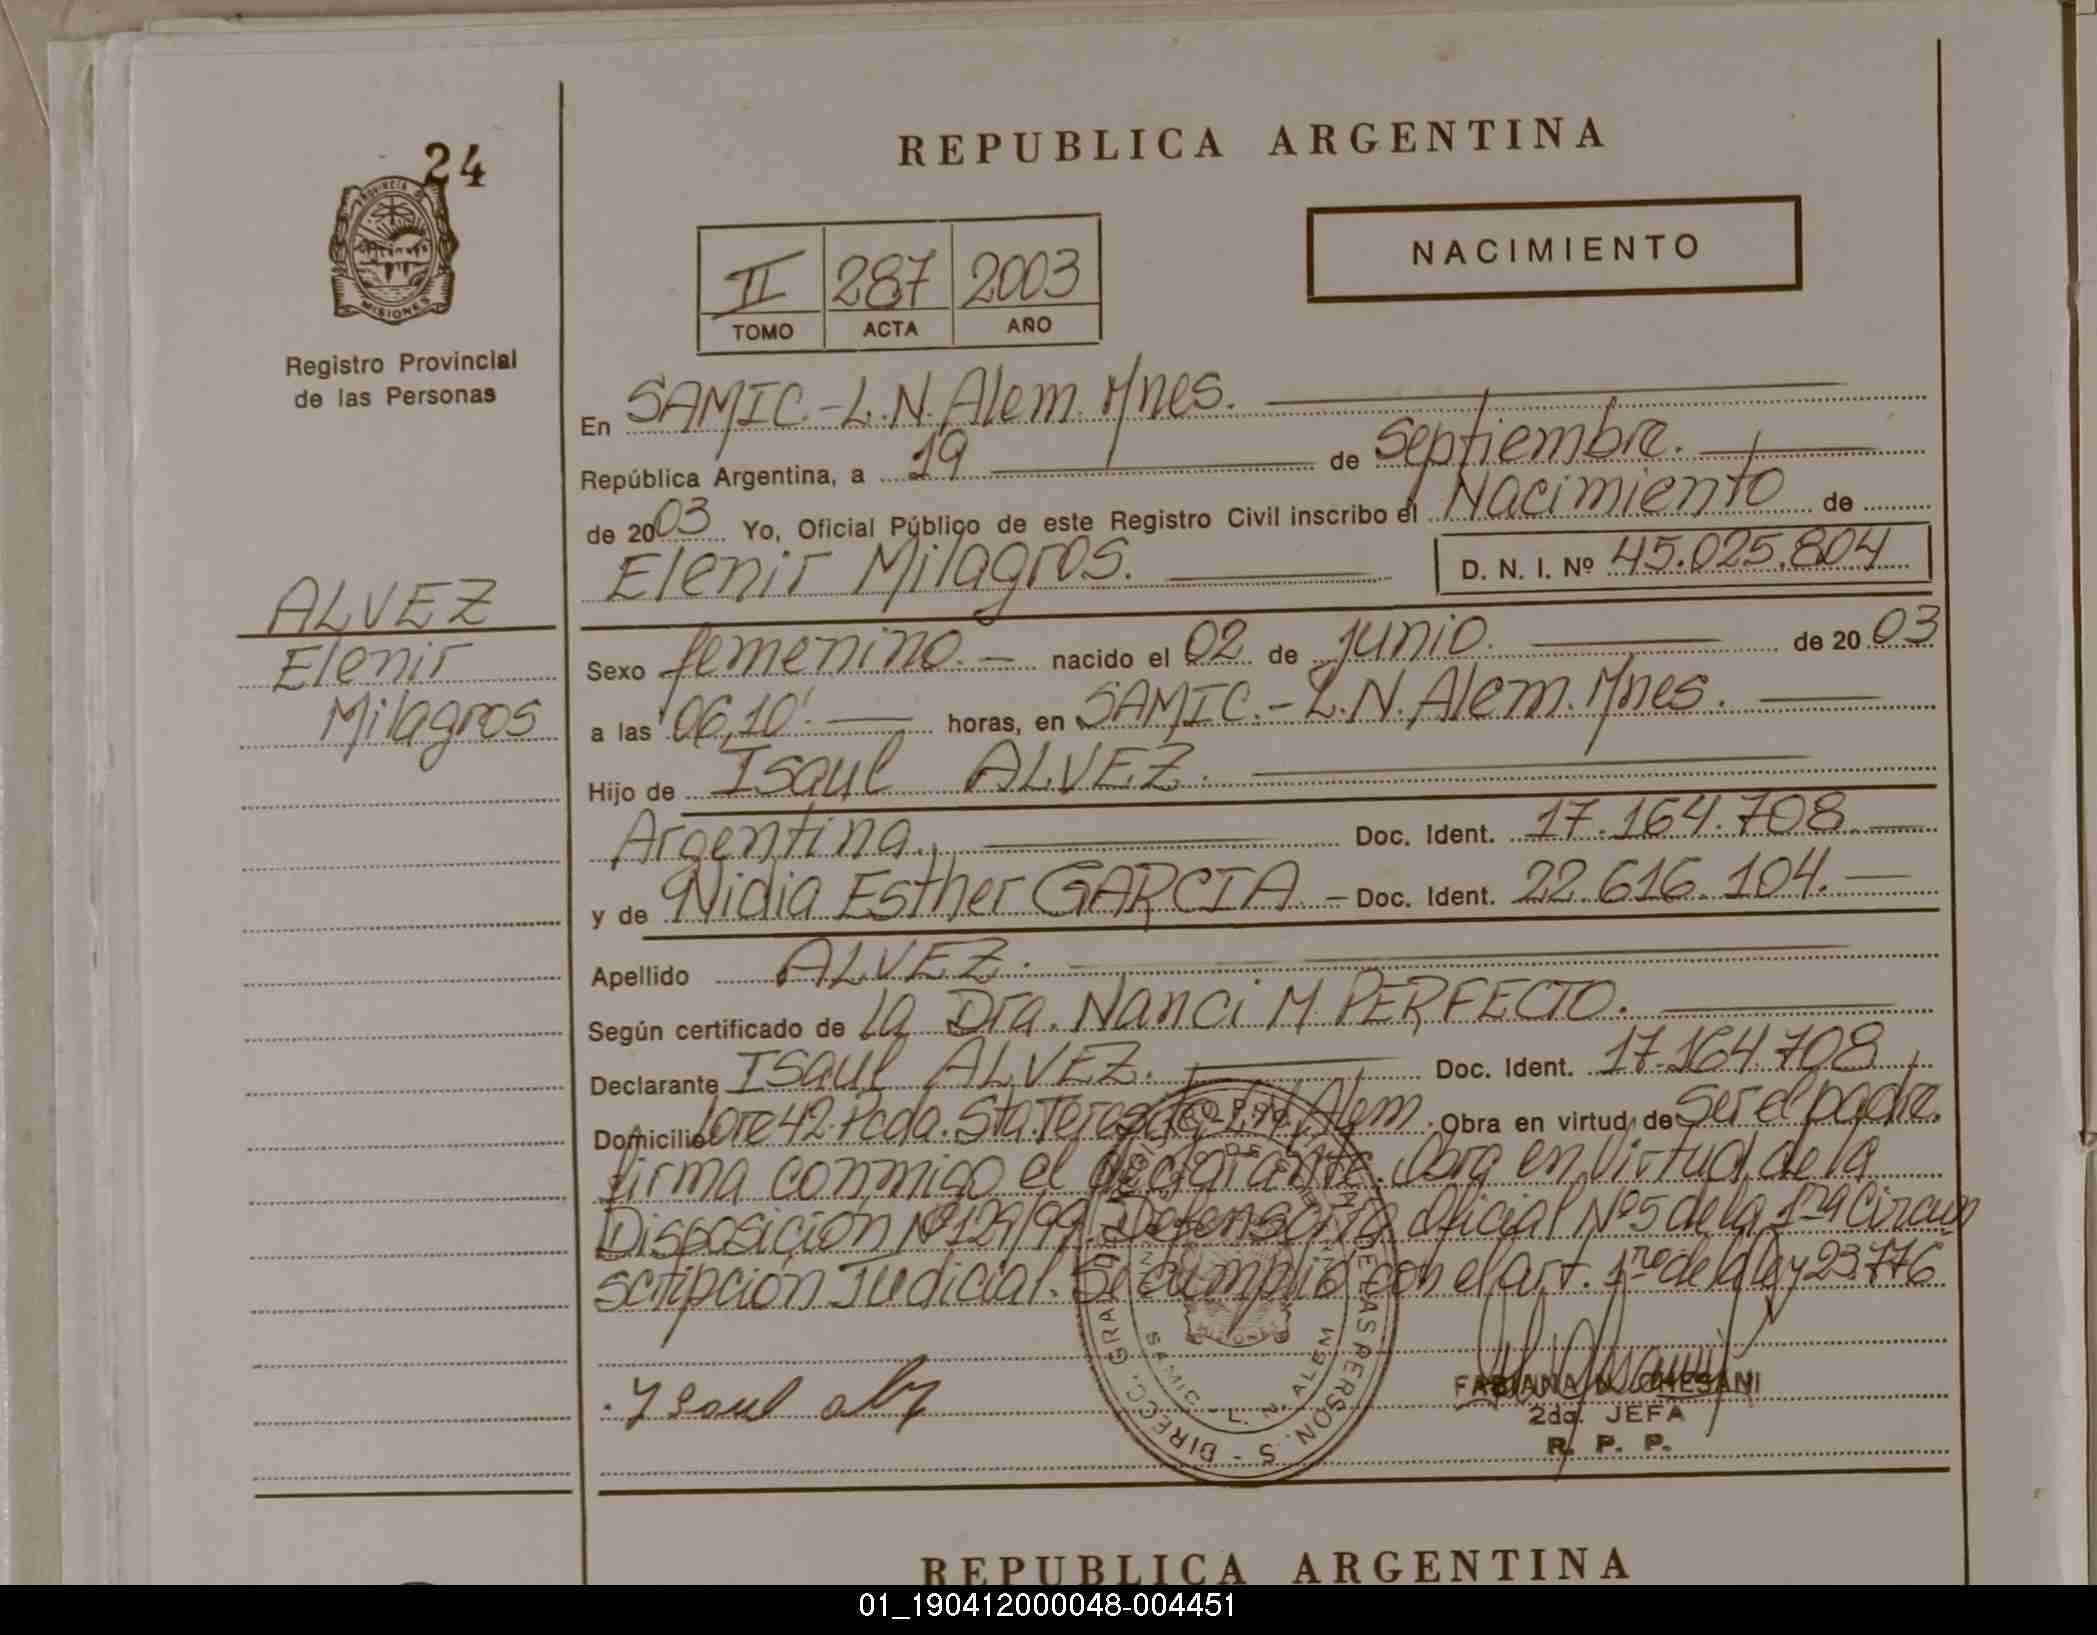 24
PROVINCIA DE
MISIONES
Registro Provincial
de las Personas
REPUBLICA ARGENTINA
NACIMIENTO
II 287 2003
TOMO ACTA AÑO
En SAMIC.-L.N.Alem.Mnes.
República Argentina, a 19 de septiembre.
de 2003 Yo, Oficial Público de este Registro Civil inscribo el Nacimiento de
Elenir Milagros. D. N. I. Nº 45.025.804
ALVEZ
Elenir
Milagros
Sexo femenino.- nacido el 02 de junio. de 2003
a las 06,10'. horas, en SAMIC.-L.N.Alem.Mnes.
Hijo de Isaul ALVEZ.
Argentina. Doc. Ident. 17.164.708
y de Nidia Esther GARCIA.- Doc. Ident. 22.616.104.
Apellido ALVEZ.
Según certificado de la Dra. Nanci M PERFECTO.
Declarante Isaul ALVEZ. Doc. Ident. 17.164.708
Domicilio Lote 42.Pcda.Sta.Teresa L.N.Alem. Obra en virtud de ser el padre.
firma conmigo el declarante. Obra en Virtud de la
Disposición Nº 129/99. Defensoría Oficial Nº5 de la 1ra Circun
scripción Judicial. Se cumplió con el art. 1ro de la ley 23.776
DIRECC. GRAL. DE LAS PERSON. S
SAMIC - L. N. ALEM
MISIONES
. Isaul alvz
FABIANA N. CHESANI
2da. JEFA
R. P. P.
REPUBLICA ARGENTINA
01_190412000048-004451